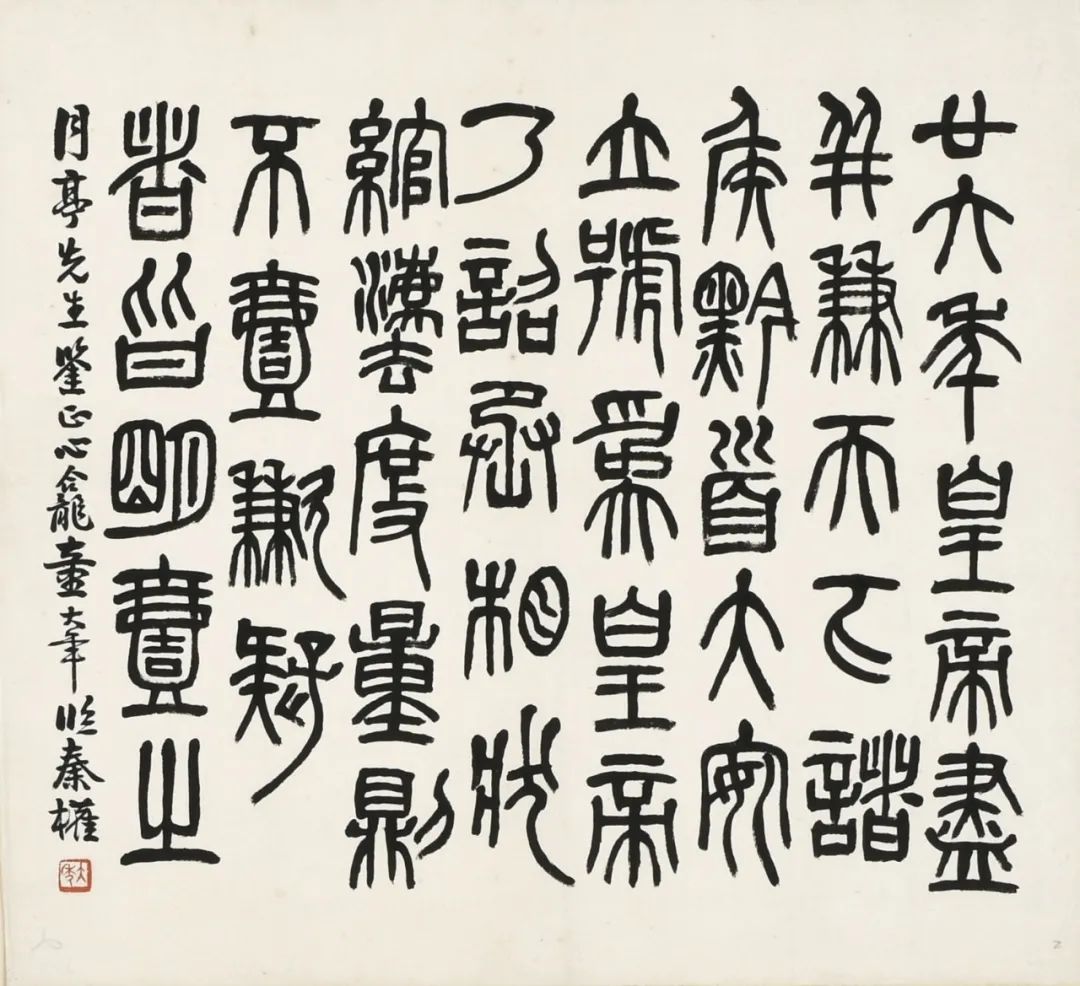 廿六年皇帝盡
并兼天下諸
矦黔首大安
立號爲皇帝
乃詔丞相狀
綰灋度量則
不壹歉疑
者皆朙壹之
月亭先生鑒正心龕童大年臨秦權
大年